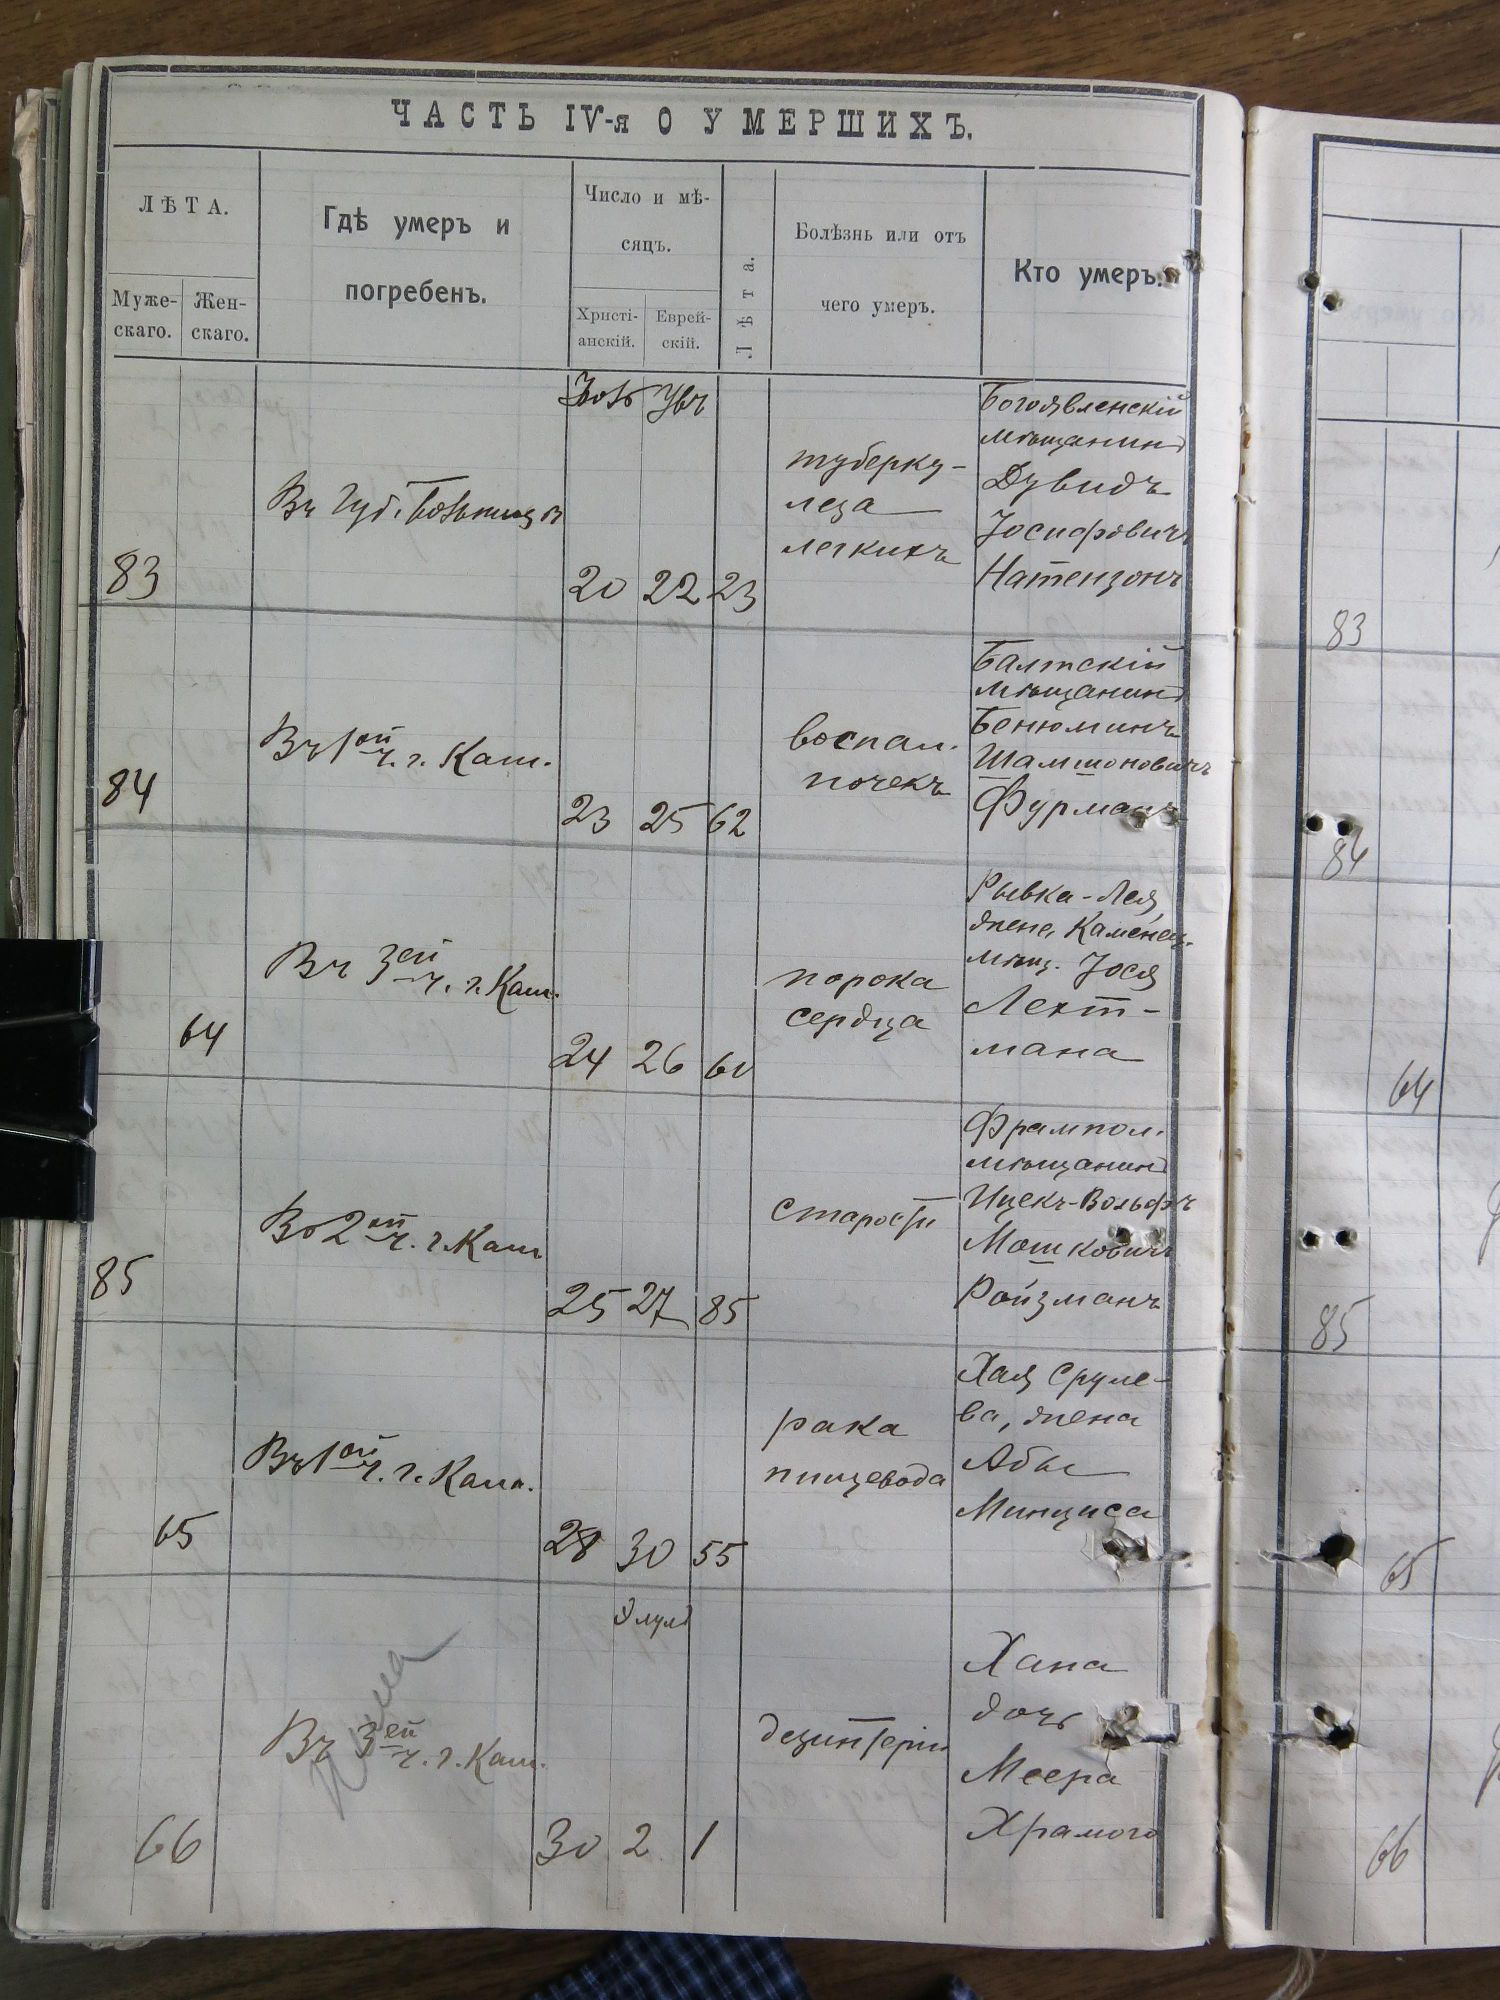 ЧАСТЬ IV-я О УМЕРШИХЪ.
ЛѢТА.
Муже-
скаго.
Жен-
скаго.
Гдѣ умеръ и
погребенъ.
Число и мѣ-
сяцъ.
Христі-
анскій.
Еврей-
скій.
Лѣта.
Болѣзнь или отъ
чего умеръ.
Кто умеръ.
83
Въ Губ. Больницѣ
20
22
23
туберку-
леза
легкихъ
Богоявленскій
мѣщанинъ
Дувидъ
Іосифовичъ
Натензонъ
83
84
Въ 1ой ч. г. Киш.
23
25
62
воспал.
почекъ
Балтскій
мѣщанинъ
Бенюминъ
Шамшоновичъ
Фурманъ
84
64
Въ 3ей ч. г. Киш.
24
26
60
порока
сердца
Рывка-Лея,
жена Каменец.
мѣщ. Іося
Лехт-
мана
64
85
Во 2ой ч. г. Киш
25
27
85
старости
Фрампол.
мѣщанинъ
Ицекъ-Вольфъ
Мошковичъ
Ройзманъ
85
65
Въ 1ой ч. г. Киш.
28
30
55
рака
пищевода
Хая Сруле-
ва, жена
Абы
Минциса
65
66
Въ 3ей ч. г. Киш.
30
Элулъ
2
1
дезинтеріи
Хана
дочь
Меера
Храмого
66